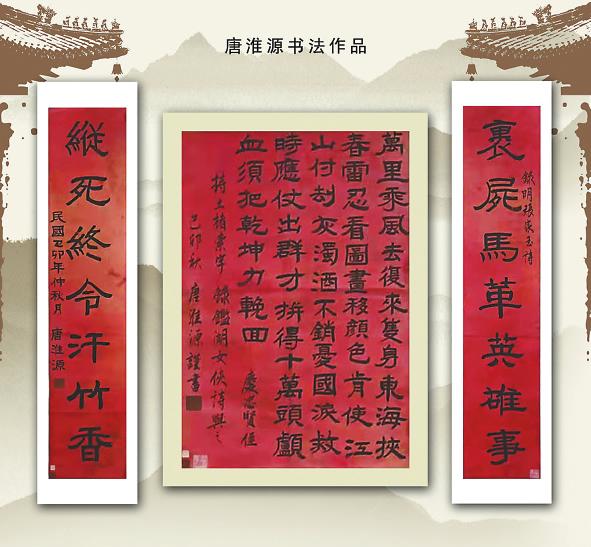 唐淮源书法作品
裹屍馬革英雄事
錄明張家玉詩
萬里乘風去復來隻身東海挾
春雷忍看圖畫移顏色肯使江
山付刦灰濁酒不銷憂國淚救
時應仗出群才拚得十萬頭顱
血須把乾坤力輓回
慶忠賢侄
持土索字 錄鑑湖女俠詩與之
己卯秋 唐淮源謹書
縱死終令汗竹香
民國己卯年仲秋月 唐淮源